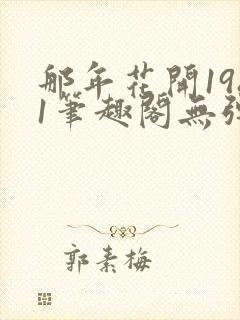 那年花開19
1筆趣閣無
郭素梅